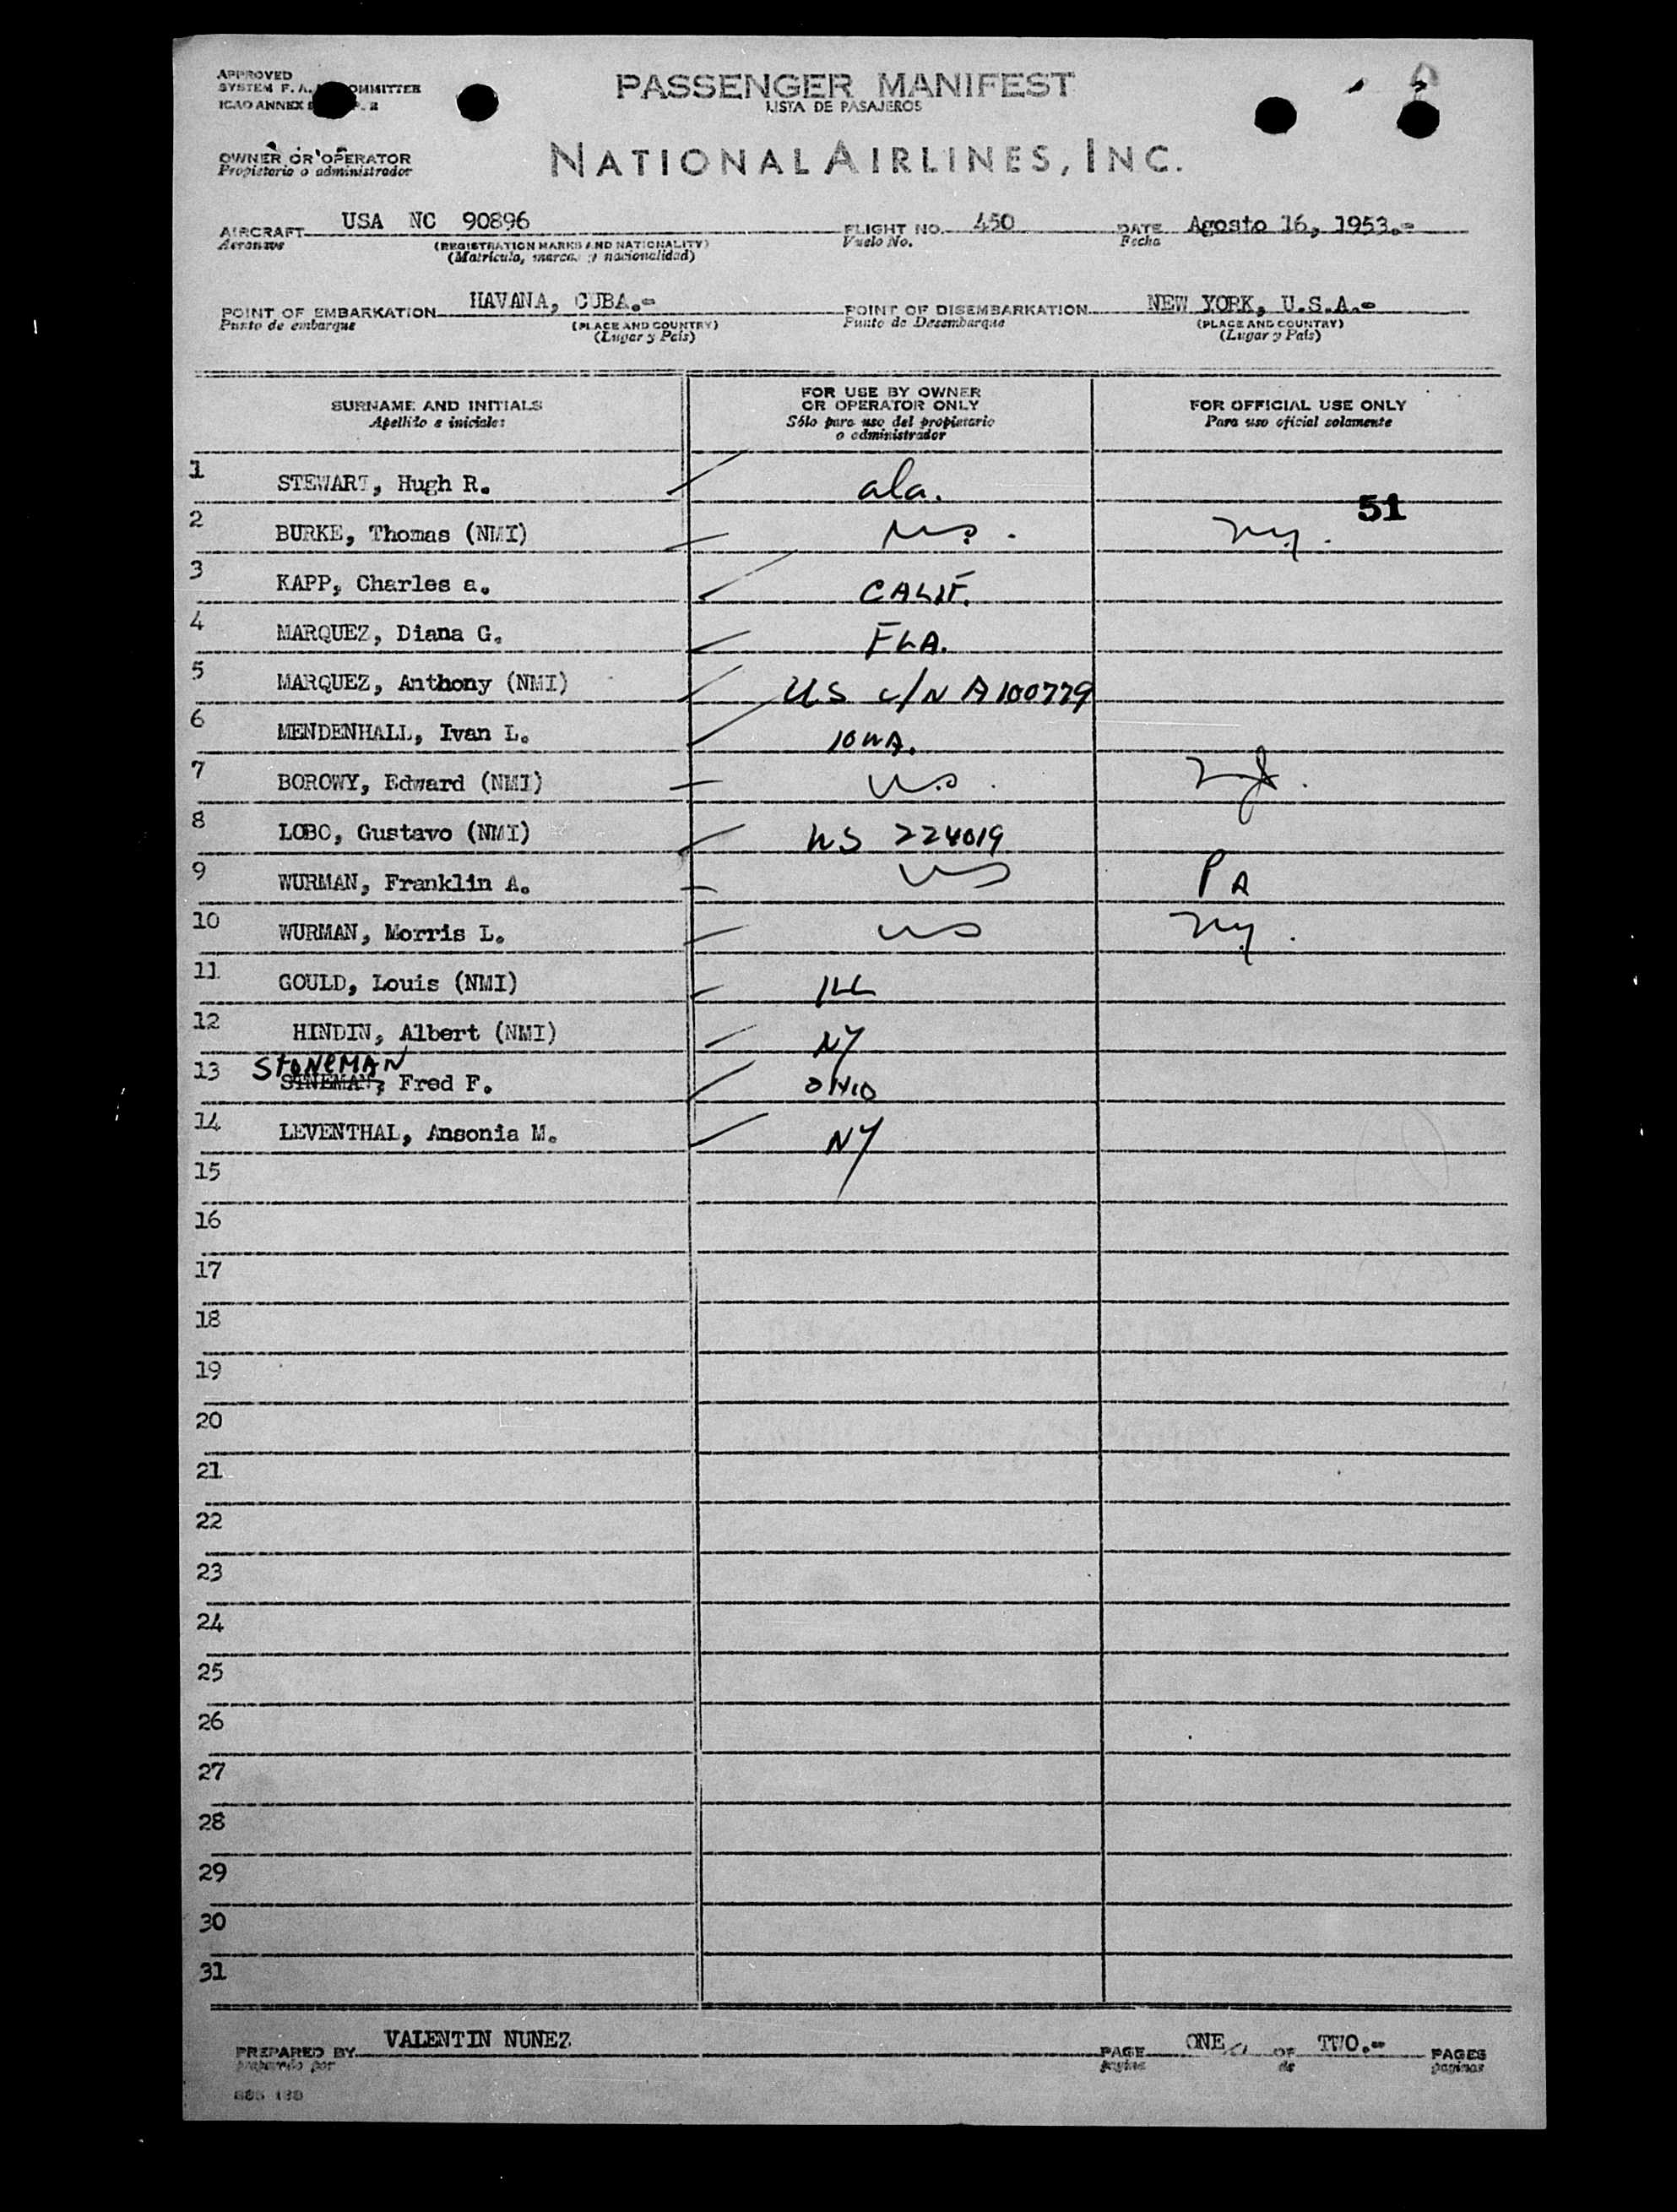 APPROVED
SYSTEM F. A. COMMITTEE
ICAO ANNEX
PASSENGER MANIFEST
LISTA DE PASAJEROS
OWNER OR OPERATOR
Propietario o administrador
NATIONAL AIRLINES, INC.
AIRCRAFT USA NC 90896 FLIGHT NO. 450 DATE Agosto 16, 1953.=
Aeronave (REGISTRATION MARKS AND NATIONALITY) Vuelo No. Fecha
(Matricula, marcas y nacionalidad)
POINT OF EMBARKATION HAVANA, CUBA.= POINT OF DISEMBARKATION NEW YORK, U.S.A.=
Punto de embarque (PLACE AND COUNTRY) Punto de Desembarque (PLACE AND COUNTRY)
(Lugar y País) (Lugar y País)
SURNAME AND INITIALS
Apellido e iniciales
FOR USE BY OWNER
OR OPERATOR ONLY
Sólo para uso del propietario
o administrador
FOR OFFICIAL USE ONLY
Para uso oficial solamente
1 STEWART, Hugh R. ala.
51
2 BURKE, Thomas (NMI) US. NY.
3 KAPP, Charles a. CALIF.
4 MARQUEZ, Diana G. FLA.
5 MARQUEZ, Anthony (NMI) US c/N A100779
6 MENDENHALL, Ivan L. IOWA.
7 BOROWY, Edward (NMI) U.S. NJ.
8 LOBO, Gustavo (NMI) US 224019
9 WURMAN, Franklin A. US PA
10 WURMAN, Morris L. US NY.
11 GOULD, Louis (NMI) ILL
12 HINDIN, Albert (NMI) NY
STONEMAN
13 SINEMAN, Fred F. OHIO
14 LEVENTHAL, Ansonia M. NY
15
16
17
18
19
20
21
22
23
24
25
26
27
28
29
30
31
PREPARED BY VALENTIN NUNEZ PAGE ONE OF TWO.= PAGES
preparado por página de paginas